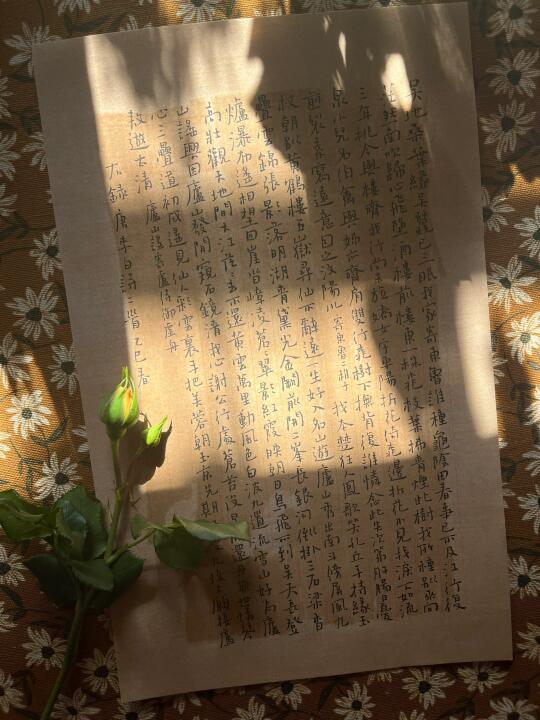 吳地桑葉綠吳蠶已三眠我家寄東魯誰種龜陰田春事已不及江行復
茫然南吹歸心飛墮酒樓前樓東一株桃枝葉拂青煙此樹我所種別來向
三年桃今與樓齊我行尚未旋嬌女字平陽折花倚桃邊折花不見我淚下如流
泉小兒名伯禽與姊亦齊肩雙行桃樹下撫背復誰憐念此失次第肝腸日憂
煎裂素寫遠意因之汶陽川 寄東魯二稚子 我本楚狂人鳳歌笑孔丘手持綠玉
杖朝別黃鶴樓五嶽尋仙不辭遠一生好入名山遊廬山秀出南斗傍屏風九
疊雲錦張影落明湖青黛光金闕前開二峯長銀河倒掛三石梁香
爐瀑布遙相望回崖沓嶂凌蒼蒼翠影紅霞映朝日鳥飛不到吳天長登
高壯觀天地間大江茫茫去不還黃雲萬里動風色白波九道流雪山好為廬
山謠興因廬山發閑窺石鏡清我心謝公行處蒼苔沒早服還丹無世情琴
心三疊道初成遙見仙人彩雲裏手把芙蓉朝玉京先期九垓上願接盧
敖遊太清 廬山謠寄盧侍御虛舟
右錄唐李白詩二首乙巳春